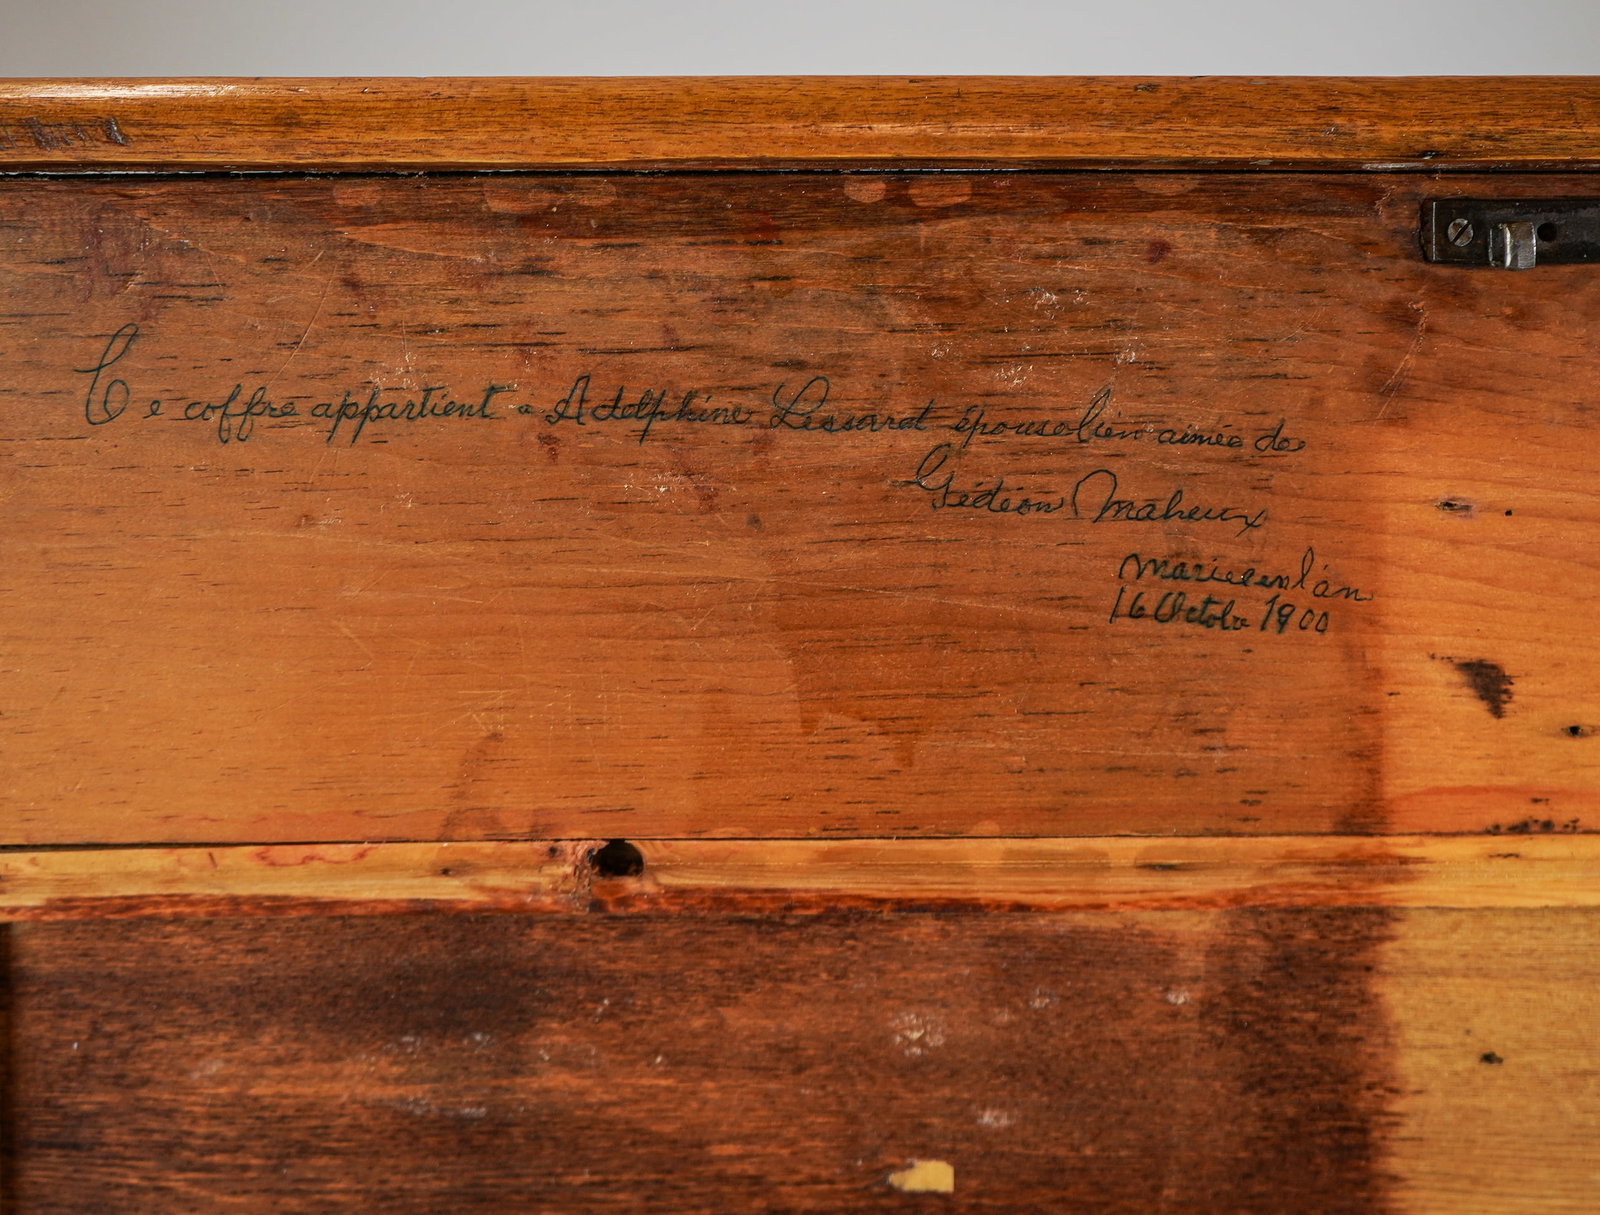 Ce coffre appartient a Adelphine Lessard épouse bien aimée de
Gédéon Maheux
mariee en l'an
16 Octobre 1900